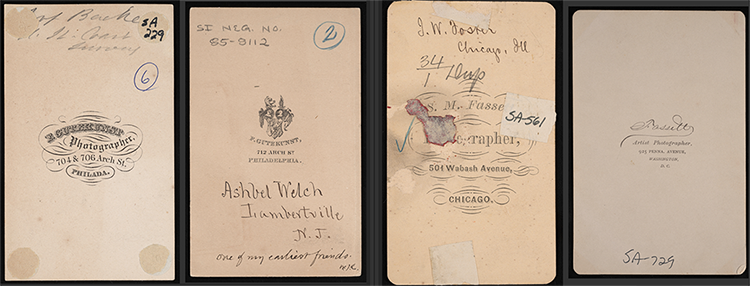 Prof Bache
U. S. Coast
Survey
SA
729
6
F. GUTEKUNST
Photographer,
704 & 706 Arch St.
PHILADA.
SI NEG. NO.
85-9112
2
F. GUTEKUNST,
712 ARCH ST
PHILADELPHIA.
Ashbel Welch
Lambertville
N. J.
one of my earliest friends.
J. W. Foster
Chicago, Ill
34
1 Dup
S. M. Fasse
SA-561
grapher,
501 Wabash Avenue,
CHICAGO.
Fassett
Artist Photographer.
925 PENNA. AVENUE,
WASHINGTON,
D. C.
SA-729